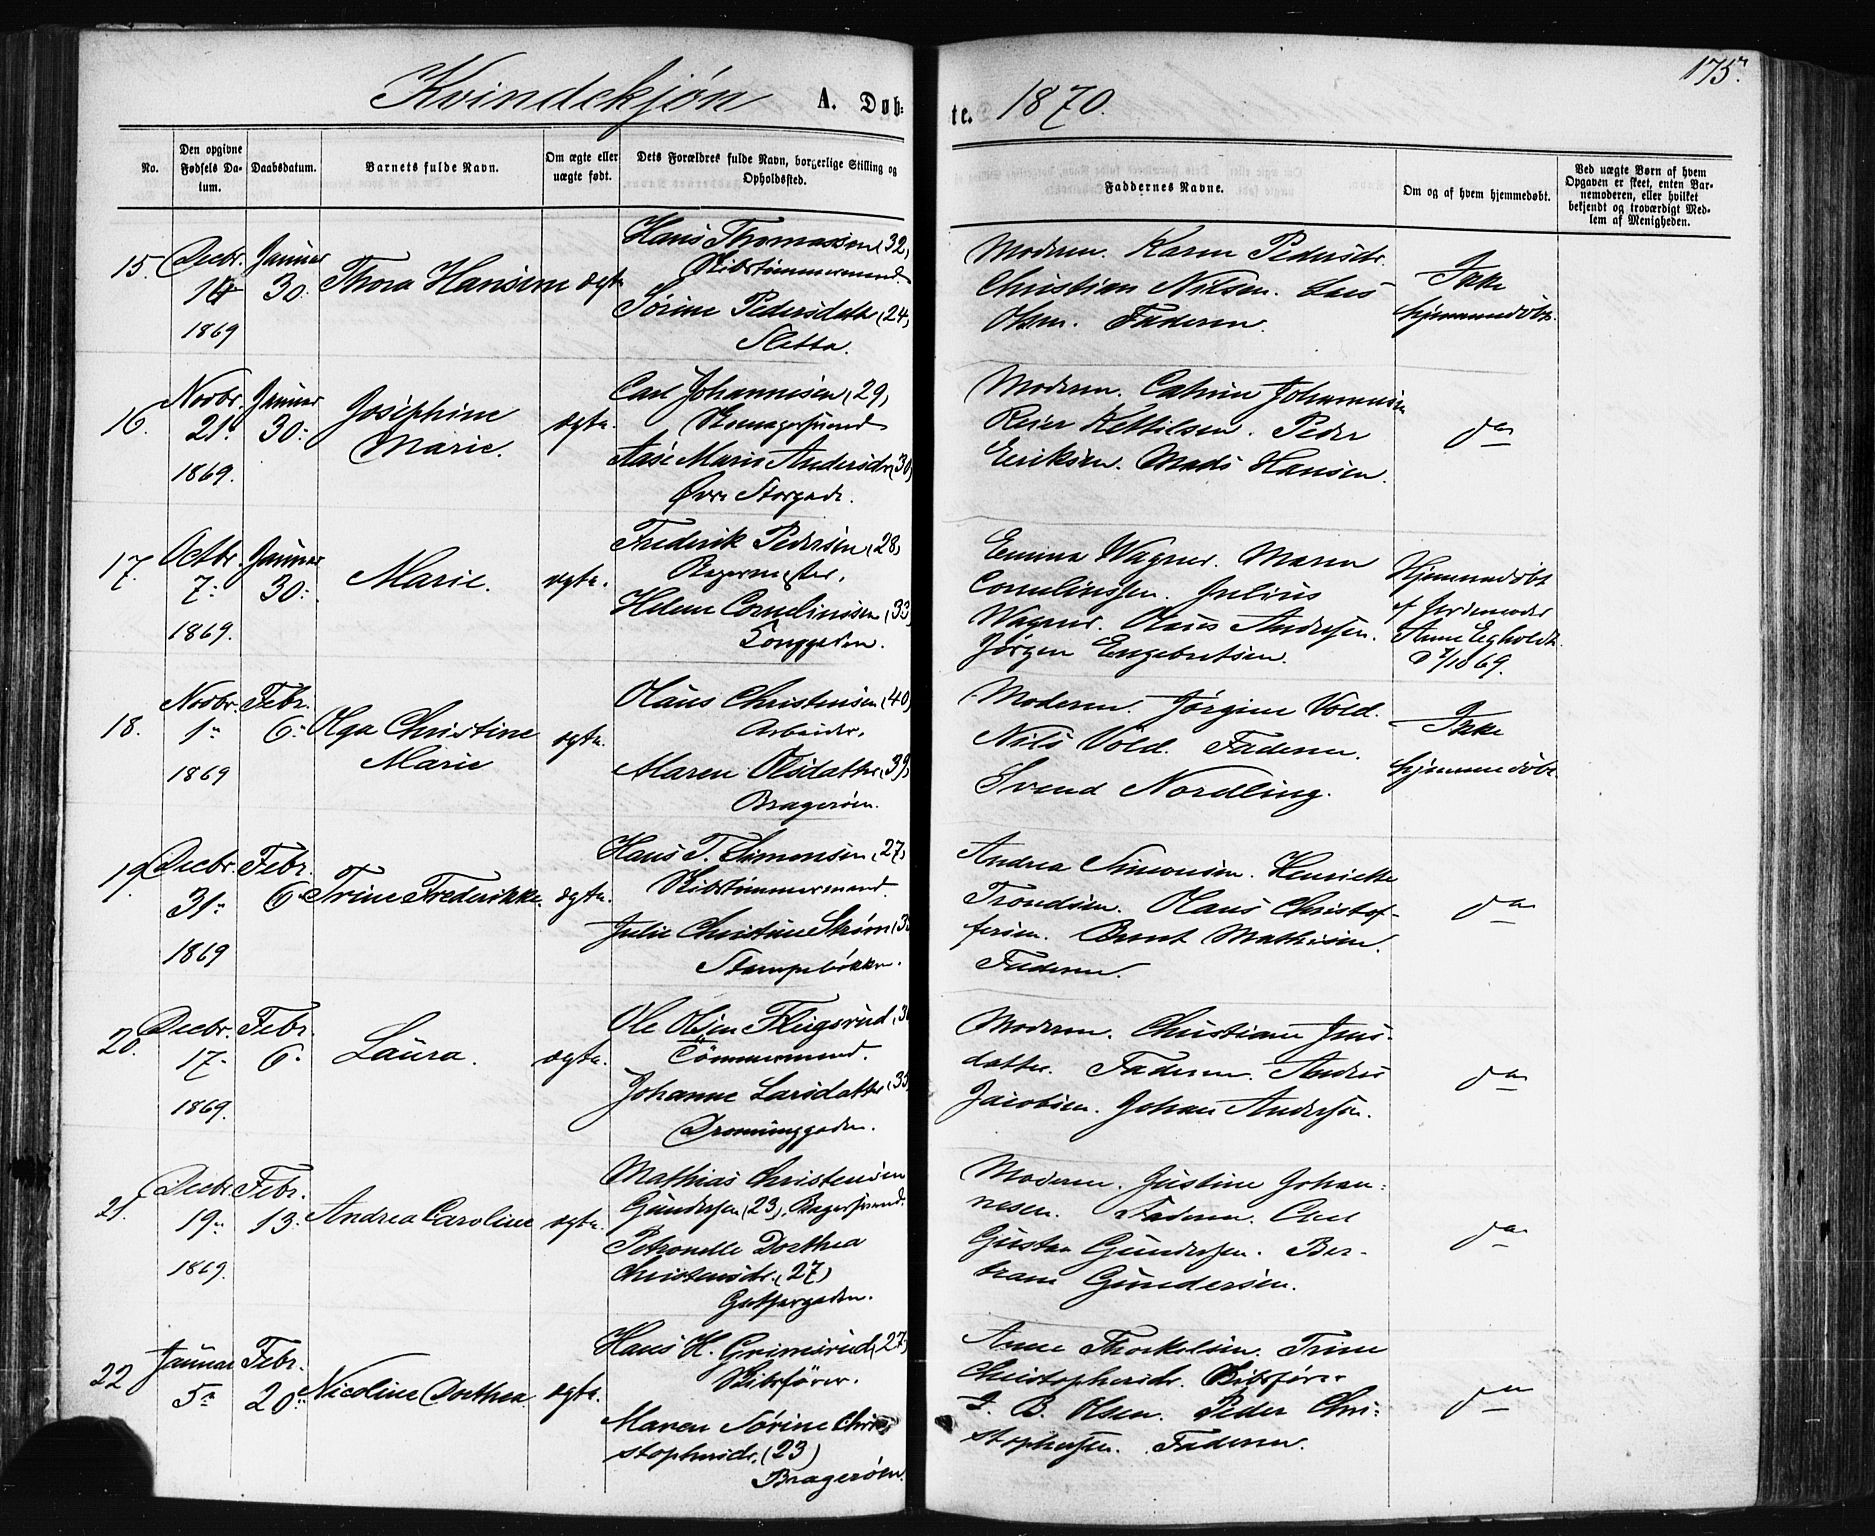 Kvindekjøn A. Døb-
te. 1870.
175.
No.
Den opgivne Fødsels Da-
tum.
Daabsdatum.
Barnets fulde Navn.
Om ægte eller
uægte født.
Dets Forældres fulde Navn, borgerlige Stilling og
Opholdssted.
Faddernes Navne.
Om og af hvem hjemmedøbt.
Ved uægte Børn af hvem
Opgaven er skeet, enten Bar-
nemoderen, eller hvilket
bekjendt og troværdigt Med-
lem af Menigheden.
15. Decbr. Januar
30. Thora Hansine ægte
1869
Hans Thomassen (32)
Skibstømmermand.
Sørine Pedersdatter (24)
Sletta.
Moderen. Karen Pedersdr.
Christian Nilsen. Lars
Olsen. Faderen.
Ikke
hjemmedøbt.
16. Novbr. Januar
21. 30. Josephine
Marie. ægte.
1869.
Carl Johannesen (29)
Skomagersvend
Aase Marie Andersdr (30)
Øvre Storgade.
Moderen. Cathrine Johannesen
Reier Kettilsen. Peder
Eriksen. Mads Hansen.
do
17. Octbr. Januar
7. 30. Marie. ægte.
1869.
Frederik Pedersen (28)
Bagermester.
Helene Corneliussen (33)
Tonggaden.
Emma Wagner. Maren
Corneliussen. Julius
Wagner. Olaus Andersen.
Jørgen Engebretsen.
Hjemmedøbt
af Jordemoder
Anne Egholdt
18. Novbr. Febr.
1. 6. Olga Christine
Marie ægte.
1869
Olaus Christensen (40)
Arbeider.
Maren Olsdatter (39)
Bragerøen.
Moderen. Jørgine Vold.
Nils Vold. Faderen.
Svend Nordling.
Ikke
hjemmedøbt.
19. Decbr. Febr.
31. 6. Trine Frederikke. ægte.
1869
Hans T. Simonsen (27)
Skibstømmermand.
Julie Christine Strøm
Stampeløkken.
Andrea Simonsen. Henriette
Trondsen. Hans Christof-
fersen. Bernt Mathisen.
Faderen.
do
20. Decbr. Febr.
17. 6. Laura. ægte.
1869.
Ole Olsen Flugsrud
Tömmermand.
Johanne Larsdatter (35)
Dronninggaden.
Moderen. Christiane Jens-
datter. Faderen. Andres
Jacobsen. Johan Andersen.
do
21. Decbr. Febr.
19. 13. Andrea Caroline ægte.
1869.
Mathias Christensen
Gundersen (23). Bagersvend.
Petronelle Dorthea
Christensdr. (27)
Gjetergaden.
Moderen. Justine Johan-
nesen. Faderen. Carl
Gustav Gundersen. Ber-
tram Gundersen.
do
22 Januar Febr.
5. 20. Nicoline Dorthea. ægte.
Hans H. Grimsrud (27)
Skibsfører.
Maren Sørine Chri-
stophersdr. (23)
Bragerøen.
Anne Thorkelsen. Trine
Christophersdr. Skibsfører
B. Olsen. Peder Chri-
stophersen. Faderen.
do